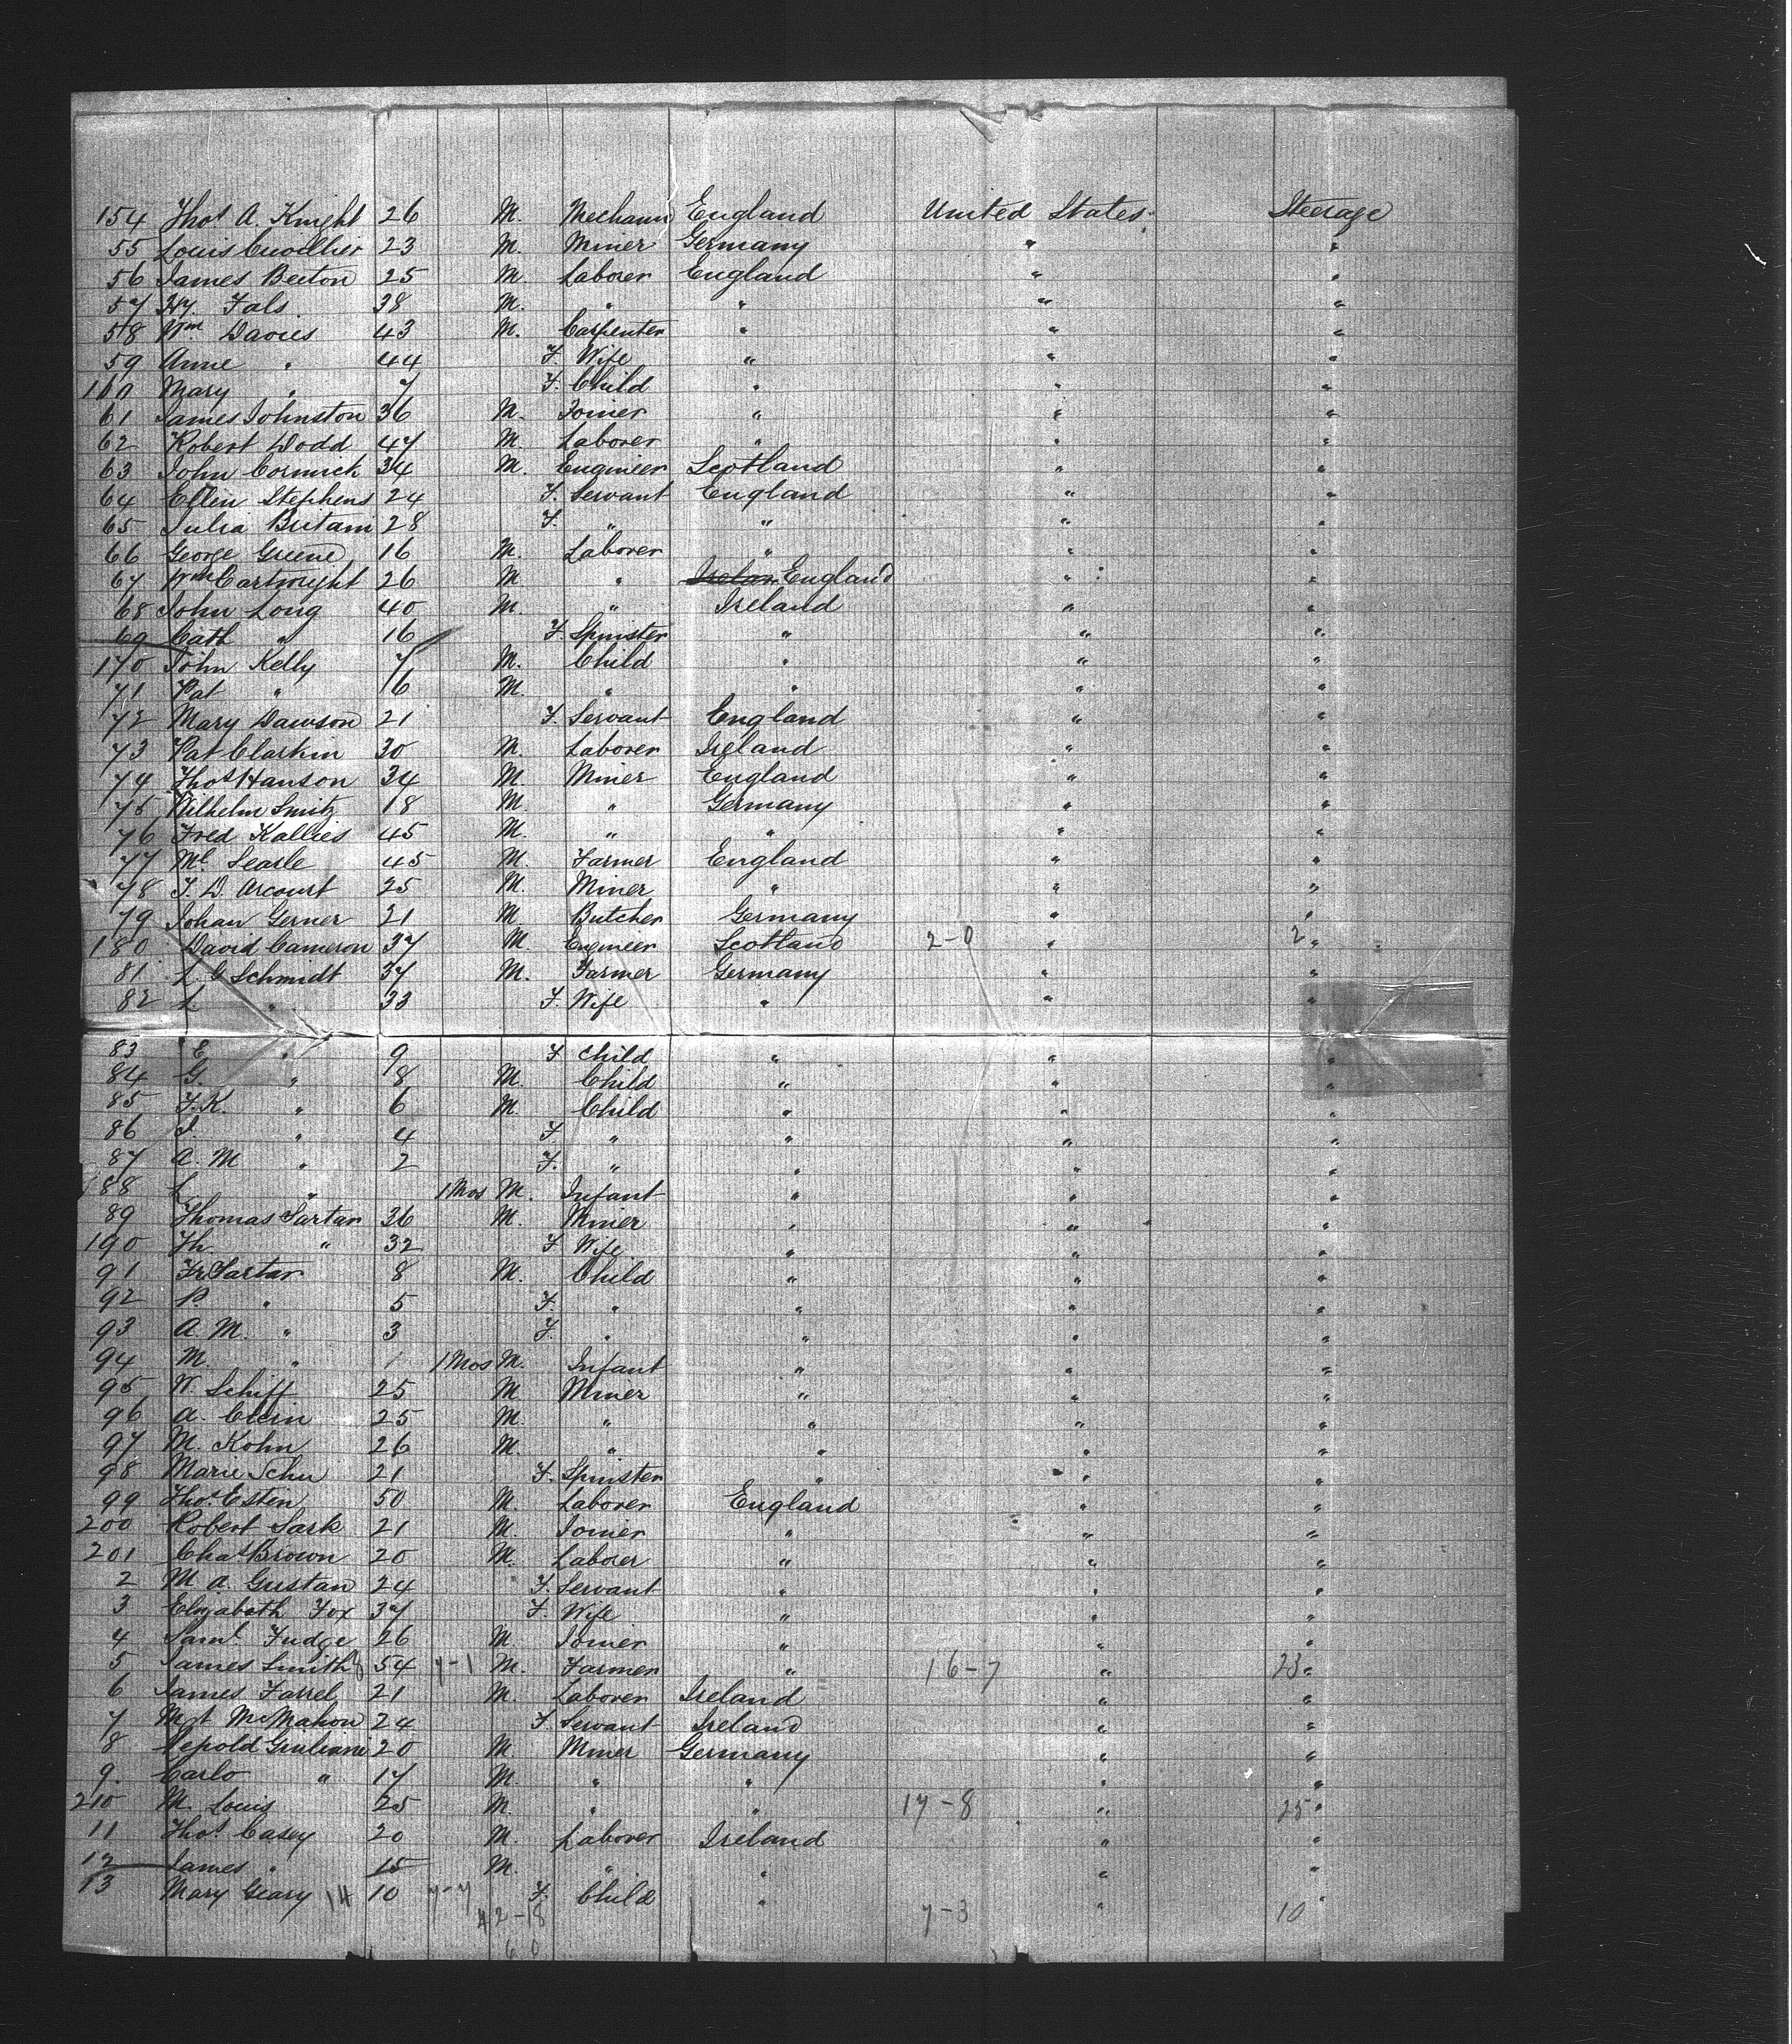 154 Thos. A. Knight 26 M. Mechanic England United States Steerage
55 Louis Cuvillier 23 M. Miner Germany " "
56 James Beeton 25 M. Laborer England " "
57 Hy. Fals 38 M. " " " "
58 Wm. Davies 43 M. Carpenter " " "
59 Anne " 44 F. Wife " " "
160 Mary " 7 F. Child " " "
61 James Johnston 36 M. Joiner " " "
62 Robert Dodd 47 M. Laborer " " "
63 John Cormick 34 M. Engineer Scotland " "
64 Ellen Stephens 24 F. Servant England " "
65 Julia Britain 28 F. " " " "
66 George Greene 16 M. Laborer " " "
67 Wm. Cartwright 26 M " Irelan England " "
68 John Long 40 M. " Ireland " "
69 Cath " 16 F. Spinster " " "
170 John Kelly 7 M. Child " " "
71 Pat " 6 M. " " " "
72 Mary Dawson 21 F. Servant England " "
73 Pat Clarkin 30 M. Laborer Ireland " "
74 Thos. Hanson 34 M. Miner England " "
75 Wilhelm Smitz 18 M. " Germany " "
76 Fred Kallies 45 M. " " " "
77 Ml. Searle 45 M. Farmer England " "
78 T. D. Arcourt 25 M. Miner " " "
79 Johan Gerner 21 M. Butcher Germany " "
180 David Cameron 37 M. Engineer Scotland 2-0 " 2 "
81 L. G Schmidt 37 M. Farmer Germany " "
82 L " 33 F. Wife " " "
83 E " 9 F Child " " "
84 G. " 8 M. Child " " "
85 F. K. " 6 M. Child " " "
86 I. " 4 F. " " " "
87 A. M " 2 F. " " " "
188 L " 1 Mos M. Infant " " "
89 Thomas Sartar 36 M. Miner " " "
190 Th. " 32 F Wife " " "
91 Fr Sartar 8 M. Child " " "
92 P. " 5 F. " " " "
93 A. M. " 3 F. " " " "
94 M. " 1 Mos M. Infant " " "
95 W. Schiff 25 M Miner " " "
96 A. Clein 25 M. " " " "
97 M. Kohn 26 M. " " " "
98 Marie Schu 21 F. Spinster " " "
99 Thos. Esten 50 M. Laborer England " "
200 Robert Sark 21 M. Joiner " " "
201 Chas Brown 20 M. Laborer " " "
2 M. A. Gustan 24 F. Servant " " "
3 Elizabeth Fox 37 F. Wife " " "
4 Saml. Fudge 26 M. Joiner " " "
5 James Smith 54 7-1 M. Farmer " 16-7 " 23 "
6 James Farrel 21 M. Laborer Ireland " "
7 Mgt McMahon 24 F. Servant Ireland " "
8 Nepold Giuliani 20 M Miner Germany " "
9. Carlo " 17 M. " " " "
210 M. Louis 25 M. " " 17-8 " 25 "
11 Thos. Casey 20 M. Laborer Ireland " "
12 James " 15 M. " " " "
13 Mary Geary 14 10 7-7 F. Child " " "
42-18 7-3 10
60